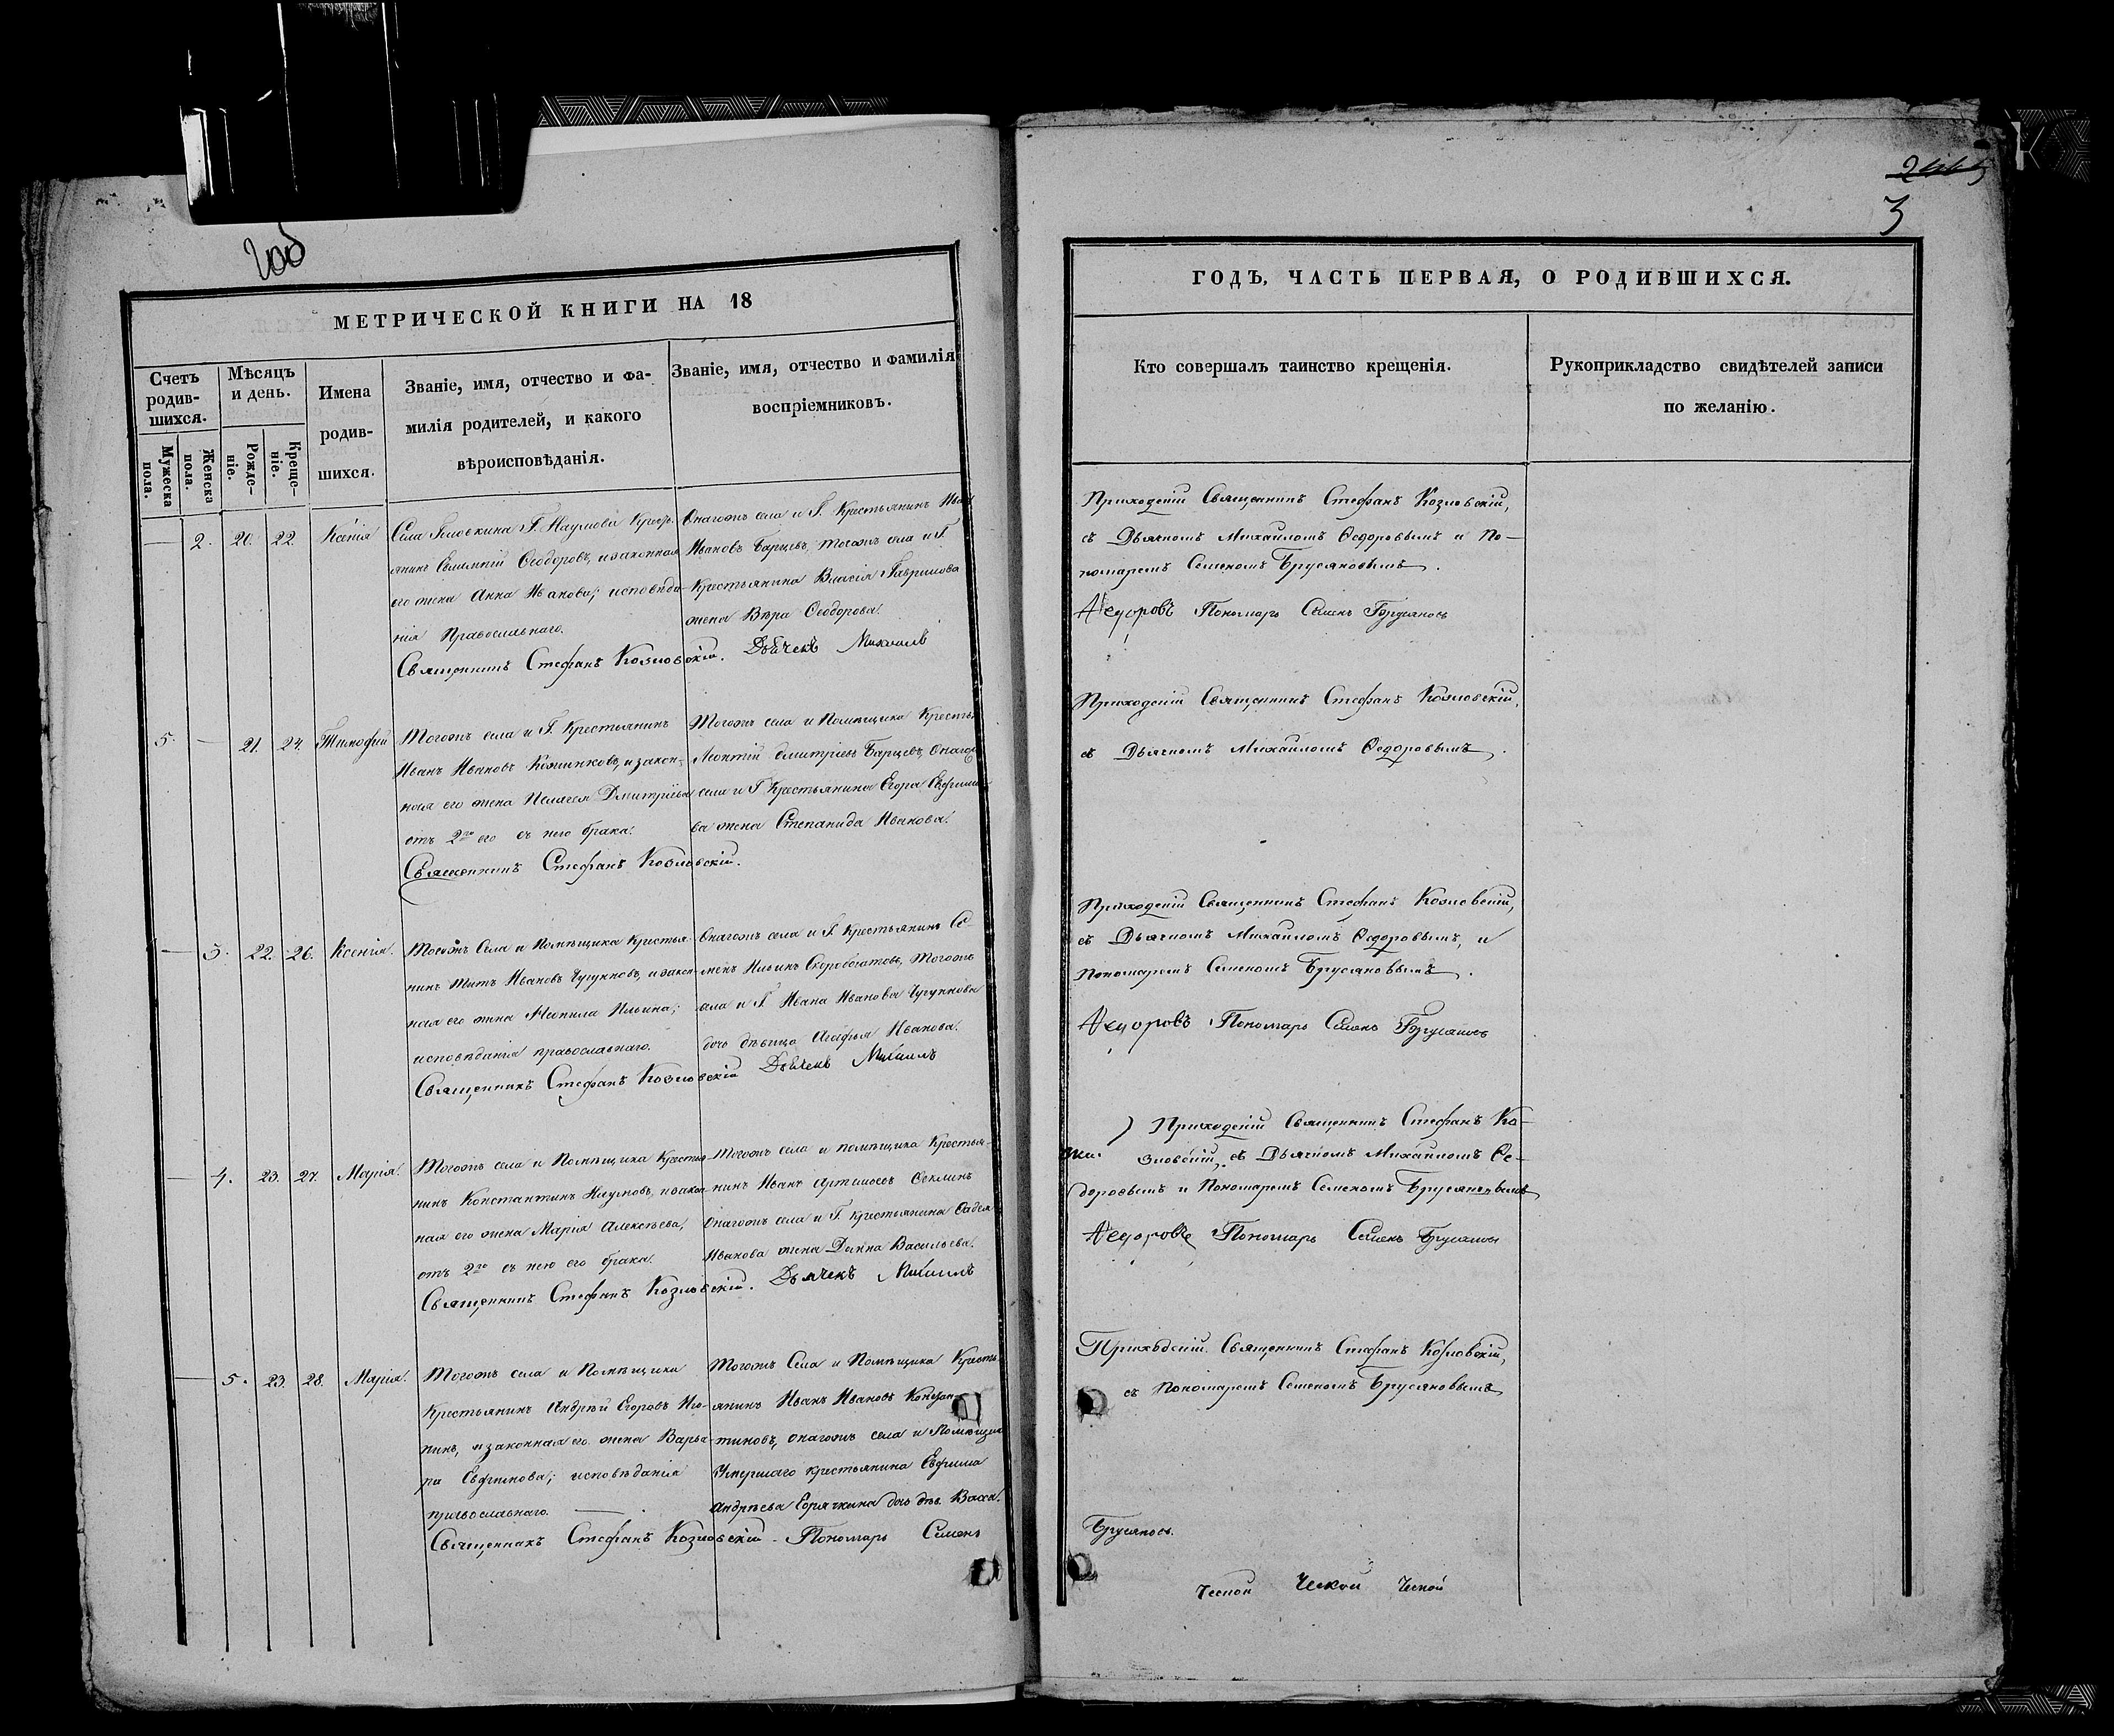 3
МЕТРИЧЕСКОЙ КНИГИ НА 18
Счетъ родив-шихся.
Мужеска пола.
Женска пола.
Мѣсяцъ и день.
Рожде-ніе.
Креще-ніе.
Имена родив-шихся.
Званіе, имя, отчество и фа-
милія родителей, и какого
вѣроисповѣданія.
Званіе, имя, отчество и фамилія
воспріемниковъ.
2. 20. 22. Ксенія
Села Г. Наумова Кресть-
янинъ Ѳеодоровъ, и законная
его жена Анна Иванова; исповѣда-
нія Православнаго.
Онагожъ села и Г. Крестьянинъ Иванъ
Ивановъ Барцевъ, тогожъ села и Г.
Крестьянина Власія Гаврилова
жена Вѣра Ѳеодорова.
Священникъ Стефанъ Козловскій. Дьячекъ Михаилъ
5. 21. 24. Тимофей
Тогожъ села и Г. Крестьянинъ
Иванъ Ивановъ и закон-
ная его жена Пелагея Дмитріева
отъ 2го его съ нею брака.
Тогожъ села и Помѣщика Крестьян
Леонтій Дмитріевъ Барцевъ, Онагожъ
села и Г. Крестьянина Егора Евфимо-
ва жена Степанида Иванова.
Священникъ Стефанъ Козловскій.
3. 22. 26. Ксенія.
Тогожъ Села и Помѣщика Крестья-
нинъ Титъ Ивановъ Чугуновъ, и закон-
ная его жена Ильина;
исповѣданія православнаго.
Онагожъ села и Г. Крестьянинъ Се-
менъ Ильинъ Скоробогатовъ, Тогожъ
села и Г. Ивана Иванова Чугунова
дочь дѣвица Агафья Иванова.
Священникъ Стефанъ Козловскій Дьячекъ Михаилъ
4. 23. 27. Марія.
Тогожъ села и Помѣщика Крестья-
нинъ Константинъ Наумовъ, и закон-
ная его жена Марія Алексѣева,
отъ 2го съ нею его брака.
Тогожъ села и помѣщика Крестья-
нинъ Иванъ Артемьевъ
Онагожъ села и Г. крестьянина Фадея
Иванова жена Васильева.
Священникъ Стефанъ Козловскій. Дьячекъ Михаилъ
5. 23. 28. Марія.
Тогожъ села и Помѣщика
Крестьянинъ Андрей Егоровъ
и законная его жена Варва-
ра Евфимова; исповѣданія
православнаго.
Тогожъ Села и Помѣщика Кресть-
янинъ Иванъ Ивановъ Констан-
тиновъ, онагожъ села и Помѣщика
Умершаго крестьянина Евфима
Андрѣева Горячкина дочь дѣв. Васса.
Священникъ Стефанъ Козловскій - Пономарь Семенъ
ГОДЪ, ЧАСТЬ ПЕРВАЯ, О РОДИВШИХСЯ.
Кто совершалъ таинство крещенія.
Рукоприкладство свидѣтелей записи
по желанію.
Приходскій Священникъ Стефанъ Козловскій,
съ Дьячкомъ Михаиломъ Ѳедоровымъ и По-
номаремъ Семеномъ Брусяновымъ.
Ѳедоровъ Пономарь Семенъ Брусяновъ
Приходскій Священникъ Стефанъ Козловскій,
съ Дьячкомъ Михаиломъ Ѳедоровымъ.
Приходскій Священникъ Стефанъ Козловскій,
съ Дьячкомъ Михаиломъ Ѳедоровымъ, и
Пономаремъ Семеномъ Брусяновымъ.
Ѳедоровъ Пономарь Семенъ Брусяновъ
Приходскій Священникъ Стефанъ Ко-
зловскій, съ Дьячкомъ Михаиломъ Ѳе-
доровымъ и Пономаремъ Семеномъ Брусяновымъ
Ѳедоровъ Пономарь Семенъ Брусяновъ
Приходскій Священникъ Стефанъ Козловскій,
съ Пономаремъ Семеномъ Брусяновымъ
Брусяновъ.